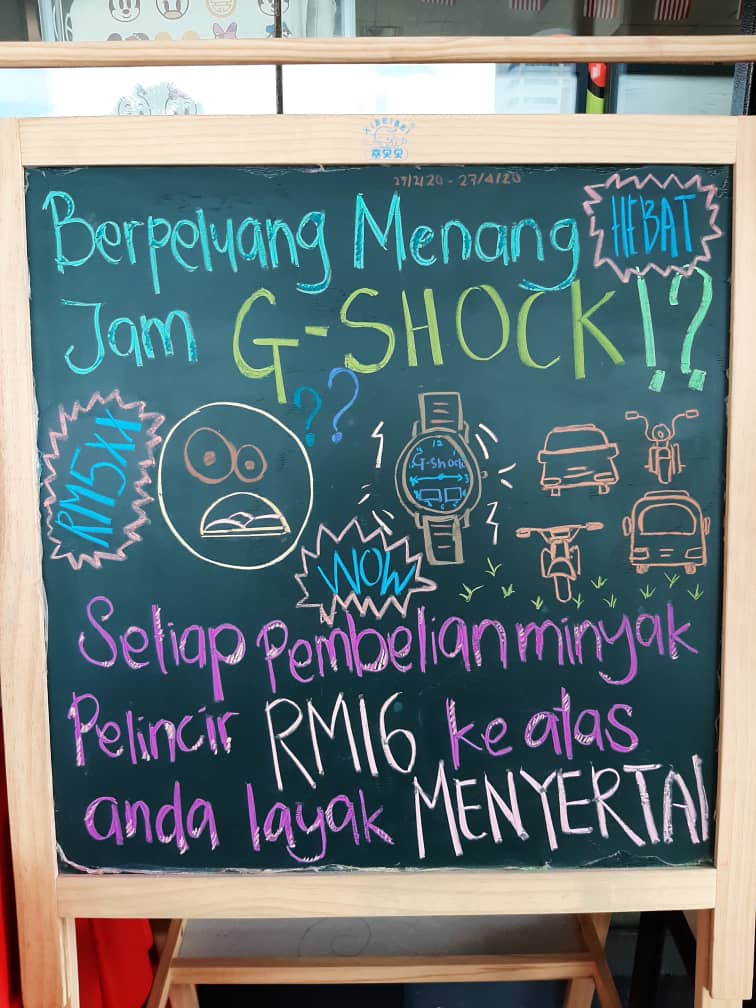 XINBEIBEI
鑫贝贝
27/2/20 - 27/4/20
Berpeluang Menang
HEBAT
Jam G-SHOCK!?
RM5XX
??
12
G-Shock
WOW
Setiap Pembelian minyak
Pelincir RM16 ke atas
anda layak MENYERTAI